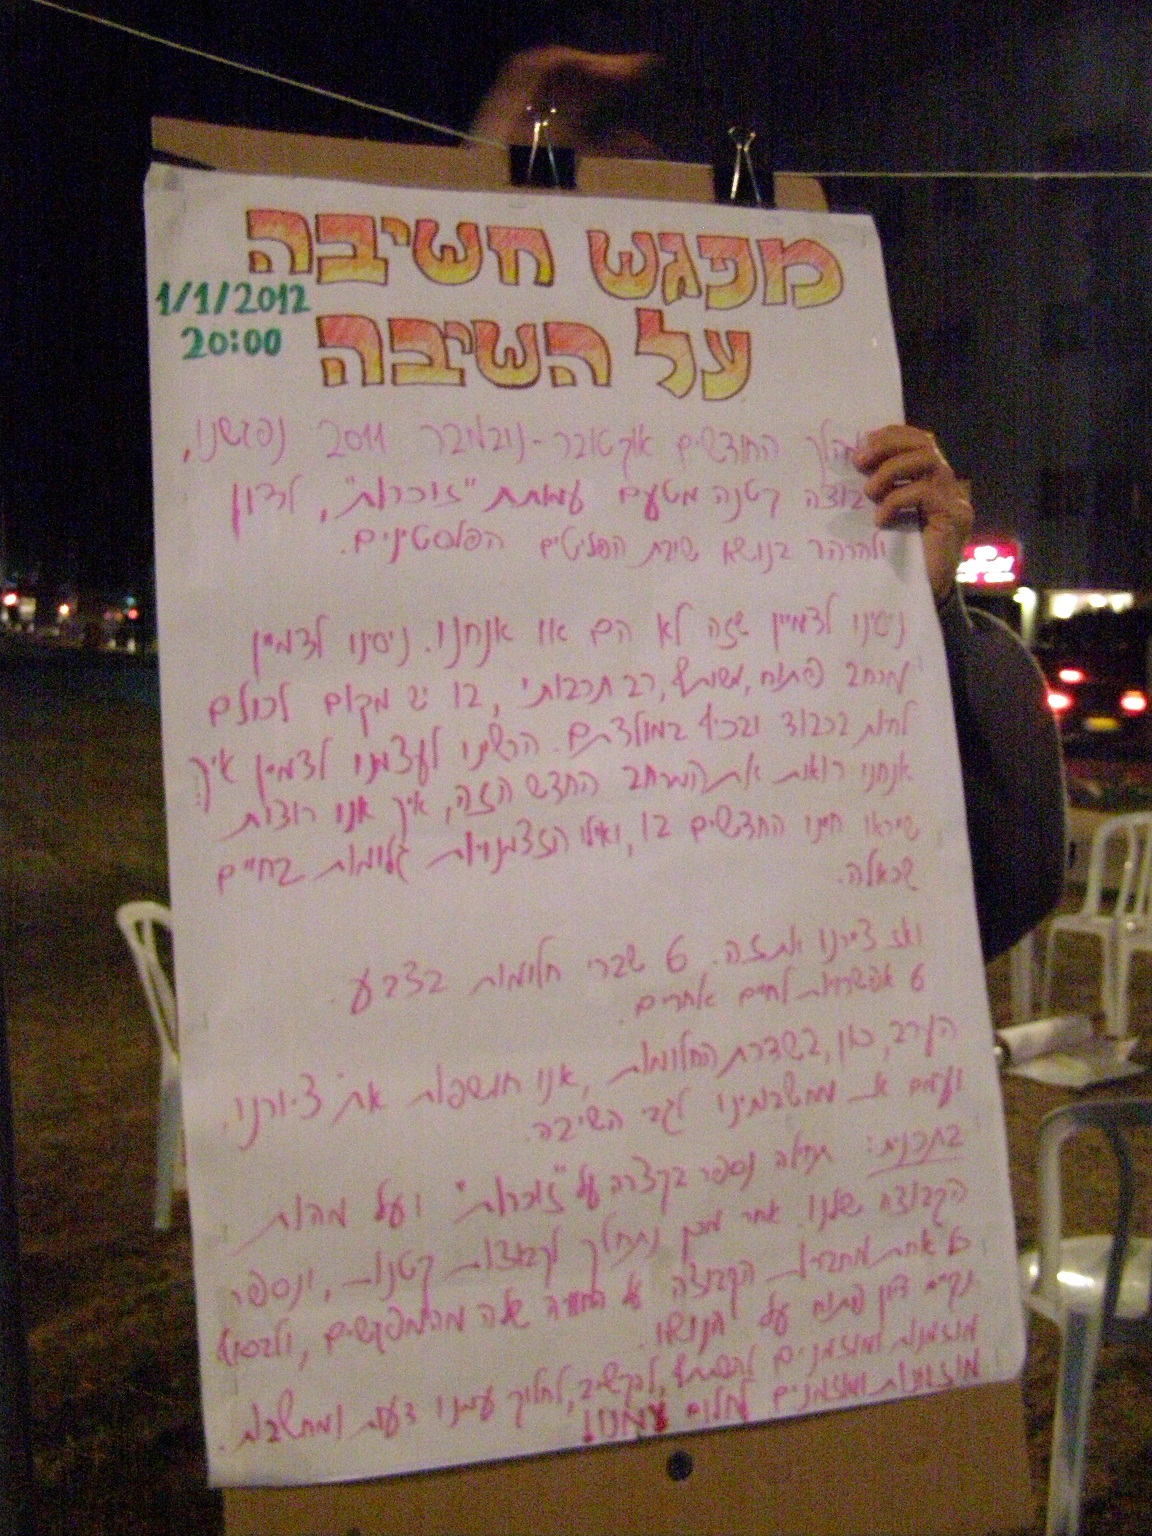 מפגש חשיבה
על השיבה
1/1/2012
20:00
החודשים אוקטובר-נובמבר 2011 נפגשנו,
קטנה מטעם עמותת "זוכרות", לדון
ולהרהר בנושא שיבת הפליטים הפלסטינים.
ניסינו לדמיין שזה לא הם או אנחנו. ניסינו לדמיין
מרחב פתוח, משותף, רב תרבותי, בו יש מקום לכולם
לחיות בכבוד ובכיף במולדתם. הרשינו לעצמנו לדמיין איך
אנחנו רואות את המרחב החדש הזה, איך אנו רוצות
שיראו חיינו החדשים בו, ואילו הזדמנויות גלומות בחיים
שכאלה.
ואז ציירנו את זה. 6 שברי חלומות בצבע.
6 אפשרויות לחיים אחרים.
הערב, כאן, בשדרת החלומות, אנו חושפות את ציורנו,
ועמם את מחשבותינו לגבי השיבה.
בתכנית: תחילה נספר בקצרה על "זוכרות" ועל מהות
הקבוצה שלנו. אחר מכן נתחלק לקבוצות קטנות, ונספר
כל אחת מחברות הקבוצה על החוויה שלה מהמפגשים, ולבסוף
נקיים דיון פתוח על הנושא.
מוזמנות ומוזמנים להשתתף, להקשיב, לחלוק עמנו דעות ומחשבות.
מוזמנות ומוזמנים לחלום עמנו!